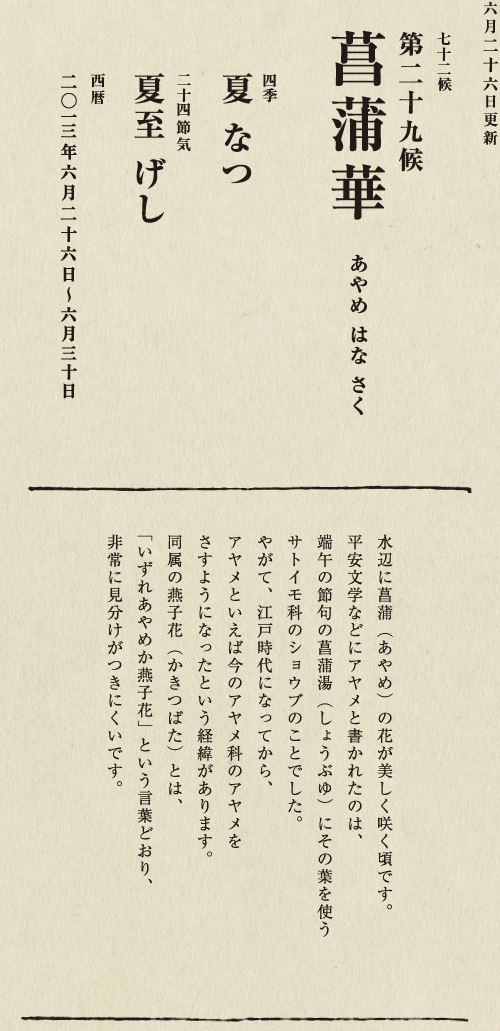 六月二十六日更新
七十二候
第二十九候
菖蒲華 あやめ はな さく
四季
夏 なつ
二十四節気
夏至 げし
西暦
二〇一三年六月二十六日～六月三十日
水辺に菖蒲（あやめ）の花が美しく咲く頃です。
平安文学などにアヤメと書かれたのは、
端午の節句の菖蒲湯（しょうぶゆ）にその葉を使う
サトイモ科のショウブのことでした。
やがて、江戸時代になってから、
アヤメといえば今のアヤメ科のアヤメを
さすようになったという経緯があります。
同属の燕子花（かきつばた）とは、
「いずれあやめか燕子花」という言葉どおり、
非常に見分けがつきにくいです。